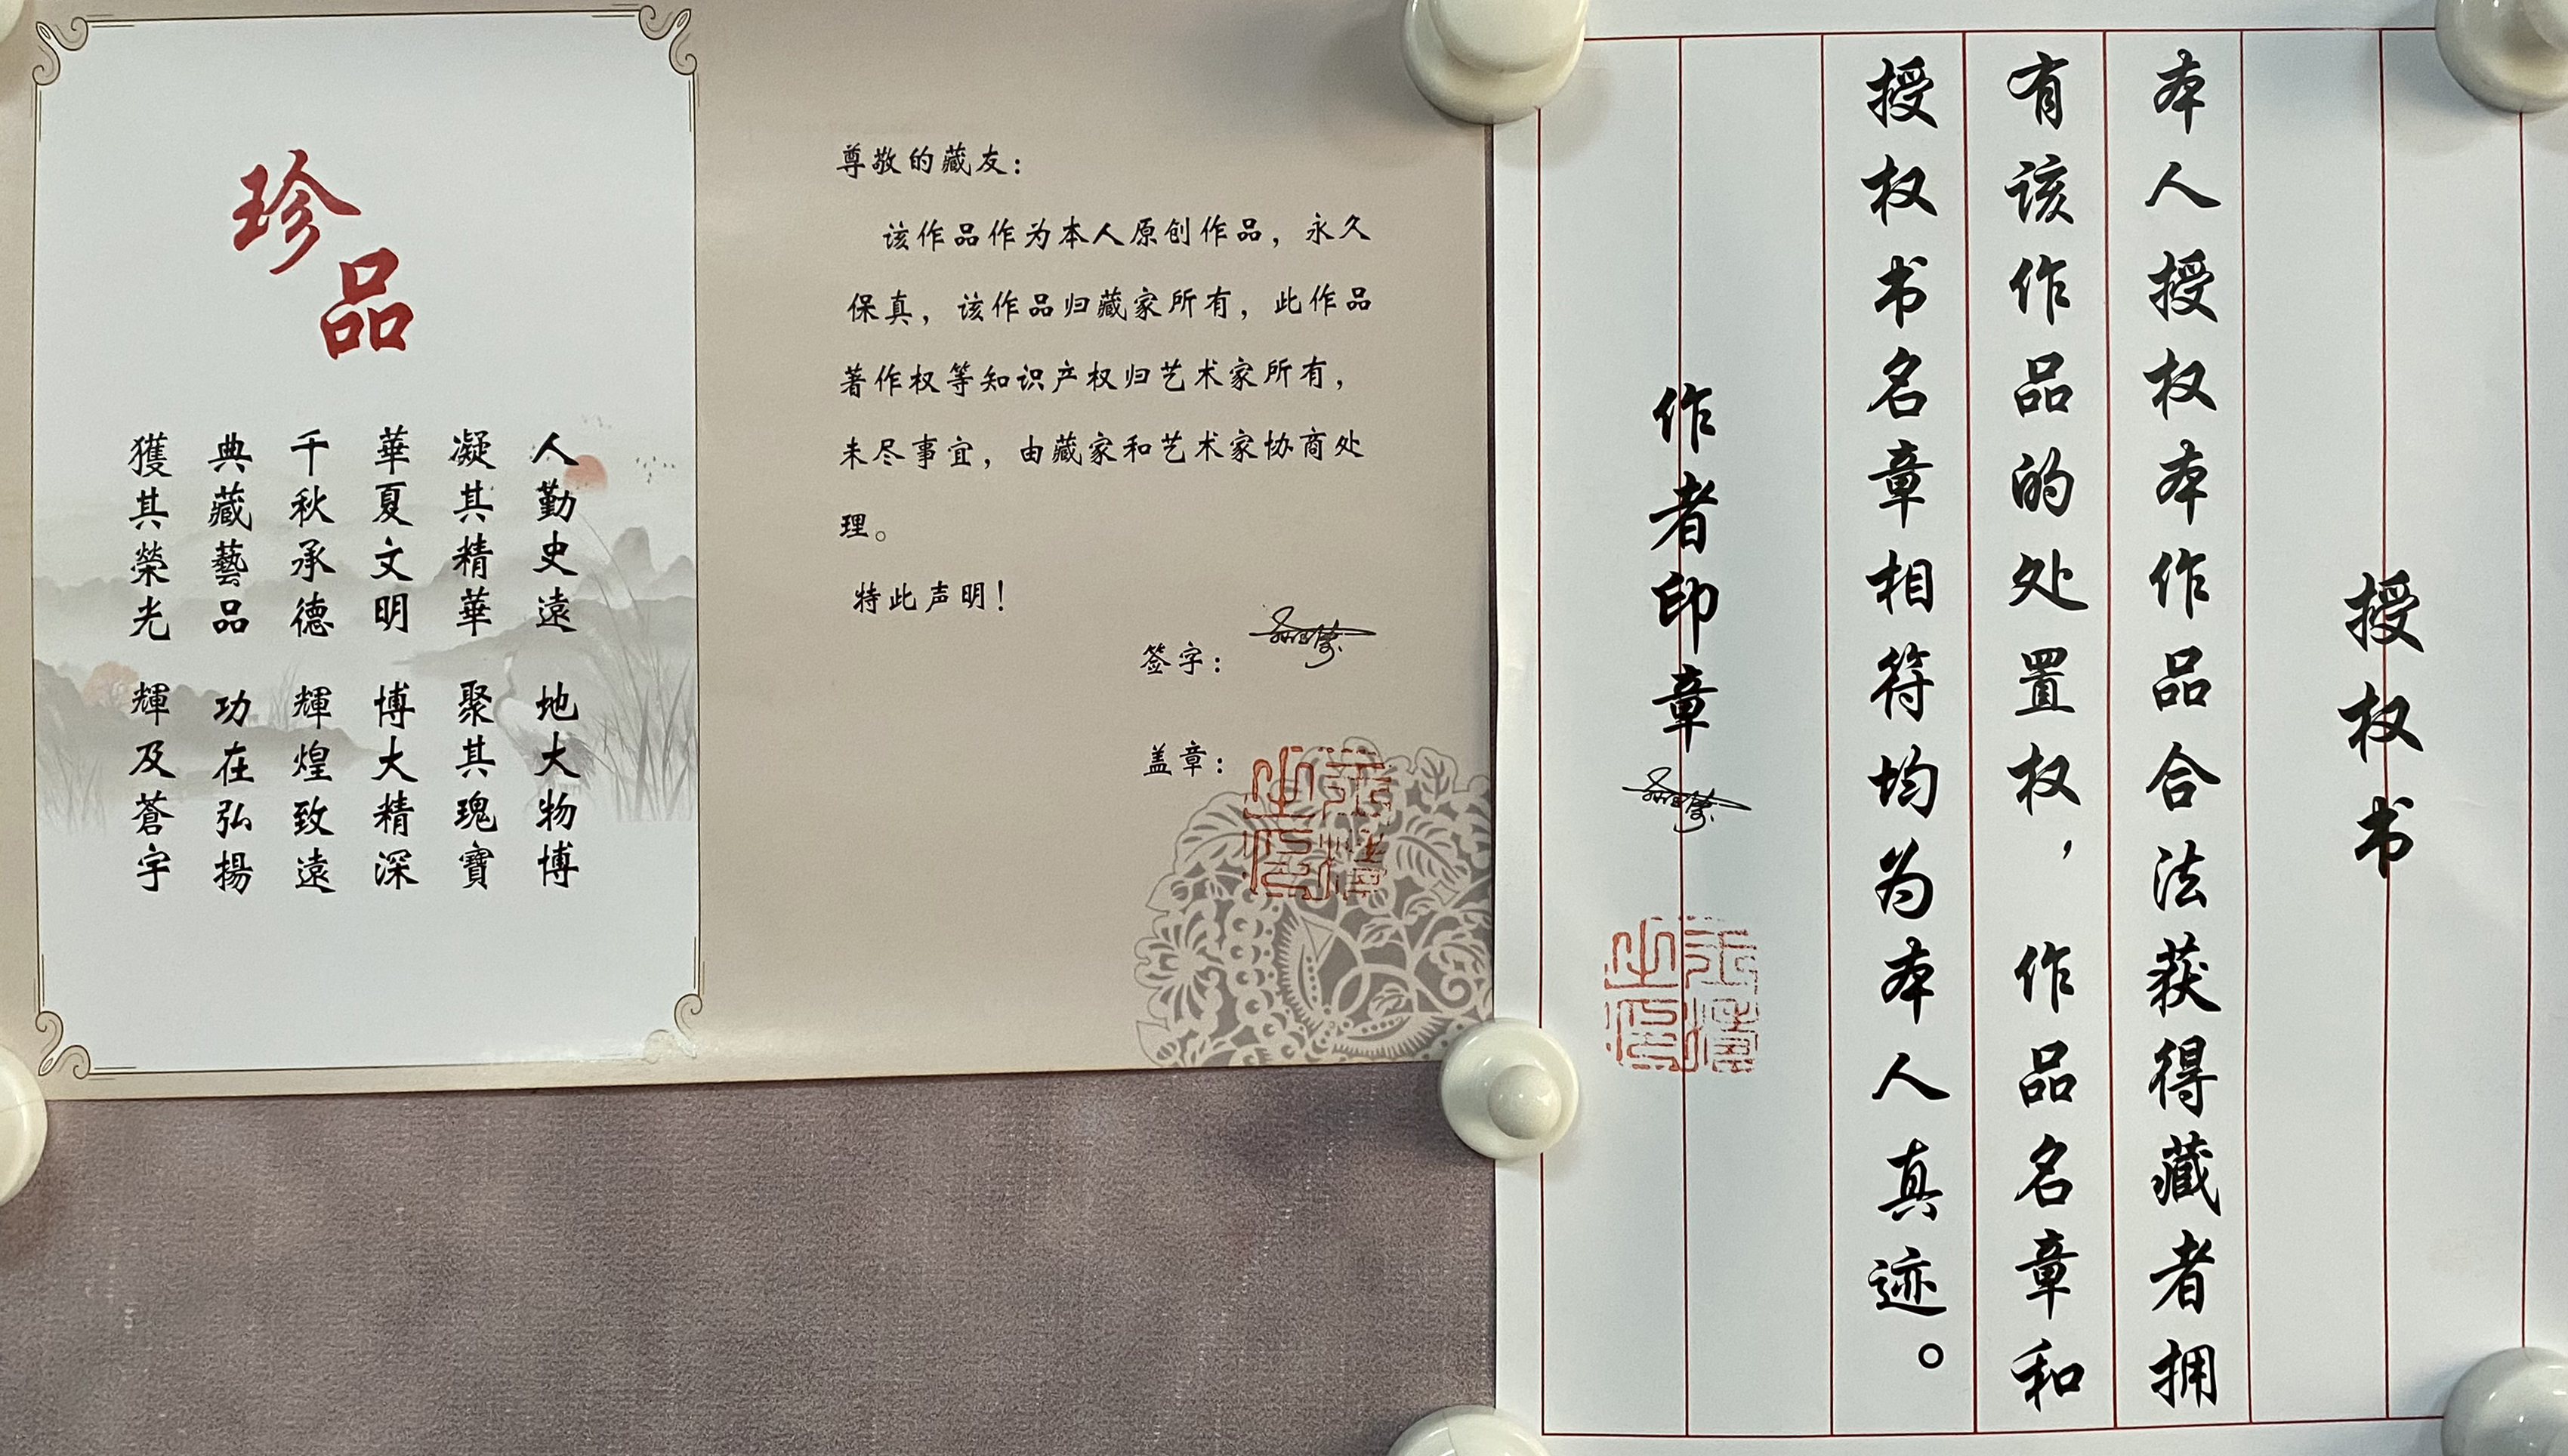 珍品
人勤史遠 地大物博
凝其精華 聚其瑰寶
華夏文明 博大精深
千秋承德 輝煌致遠
典藏藝品 功在弘揚
獲其榮光 輝及蒼宇
尊敬的藏友：
该作品作为本人原创作品，永久
保真，该作品归藏家所有，此作品
著作权等知识产权归艺术家所有，
未尽事宜，由藏家和艺术家协商处
理。
特此声明！
签字：
盖章：
授权书
本人授权本作品合法获得藏者拥
有该作品的处置权，作品名章和
授权书名章相符均为本人真迹。
作者印章